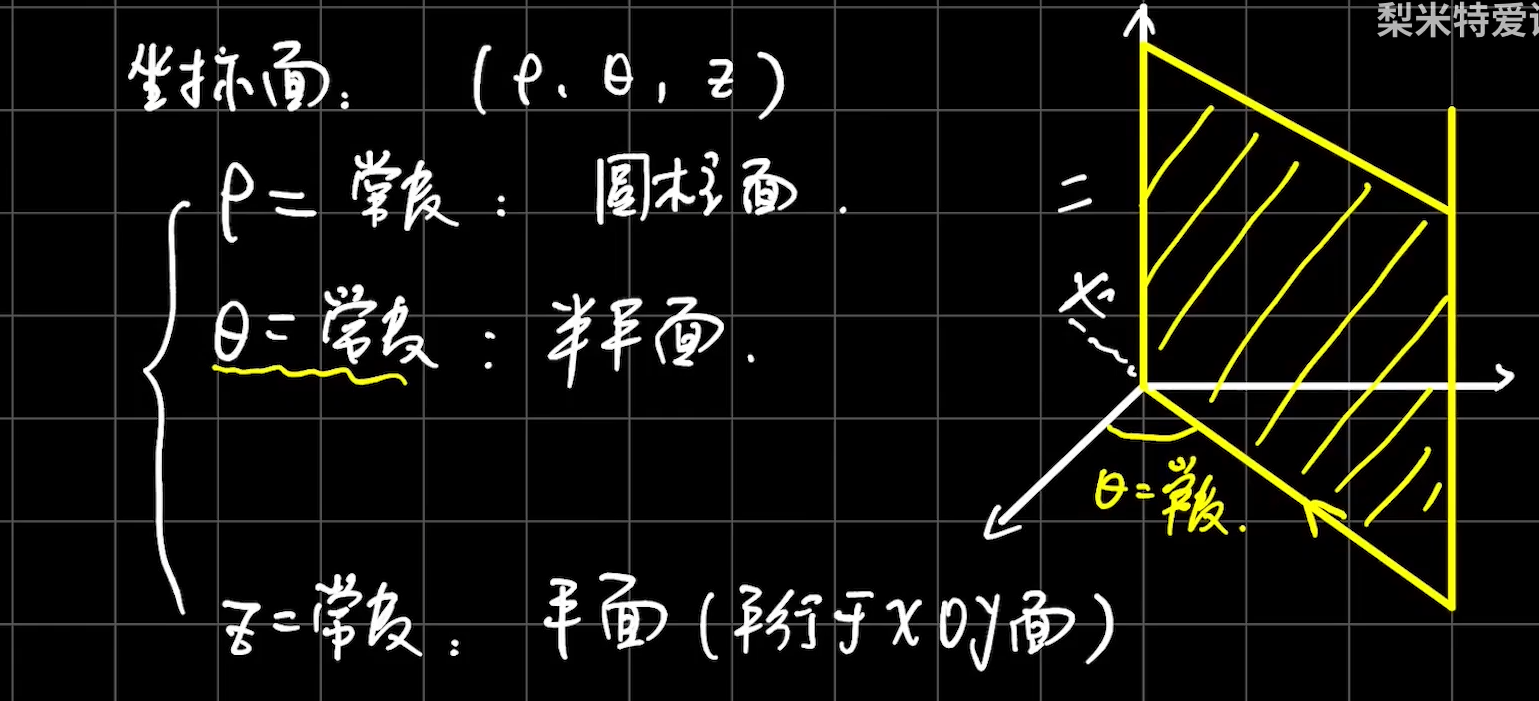 梨米特爱
坐标面: (ρ, θ, z)
ρ = 常数: 圆柱面.
θ = 常数: 半平面.
θ = 常数.
z = 常数: 平面 (平行于 xOy 面)